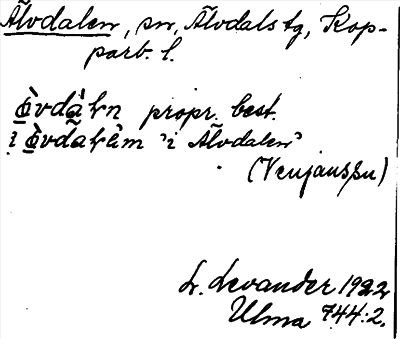 Älvdalen, sn, Älvdals tg, Kop-
parb. l.
propr. best.
i 'i Älvdalen'
(Venjanssn)
L. Levander 1922
Ulma 744:2.